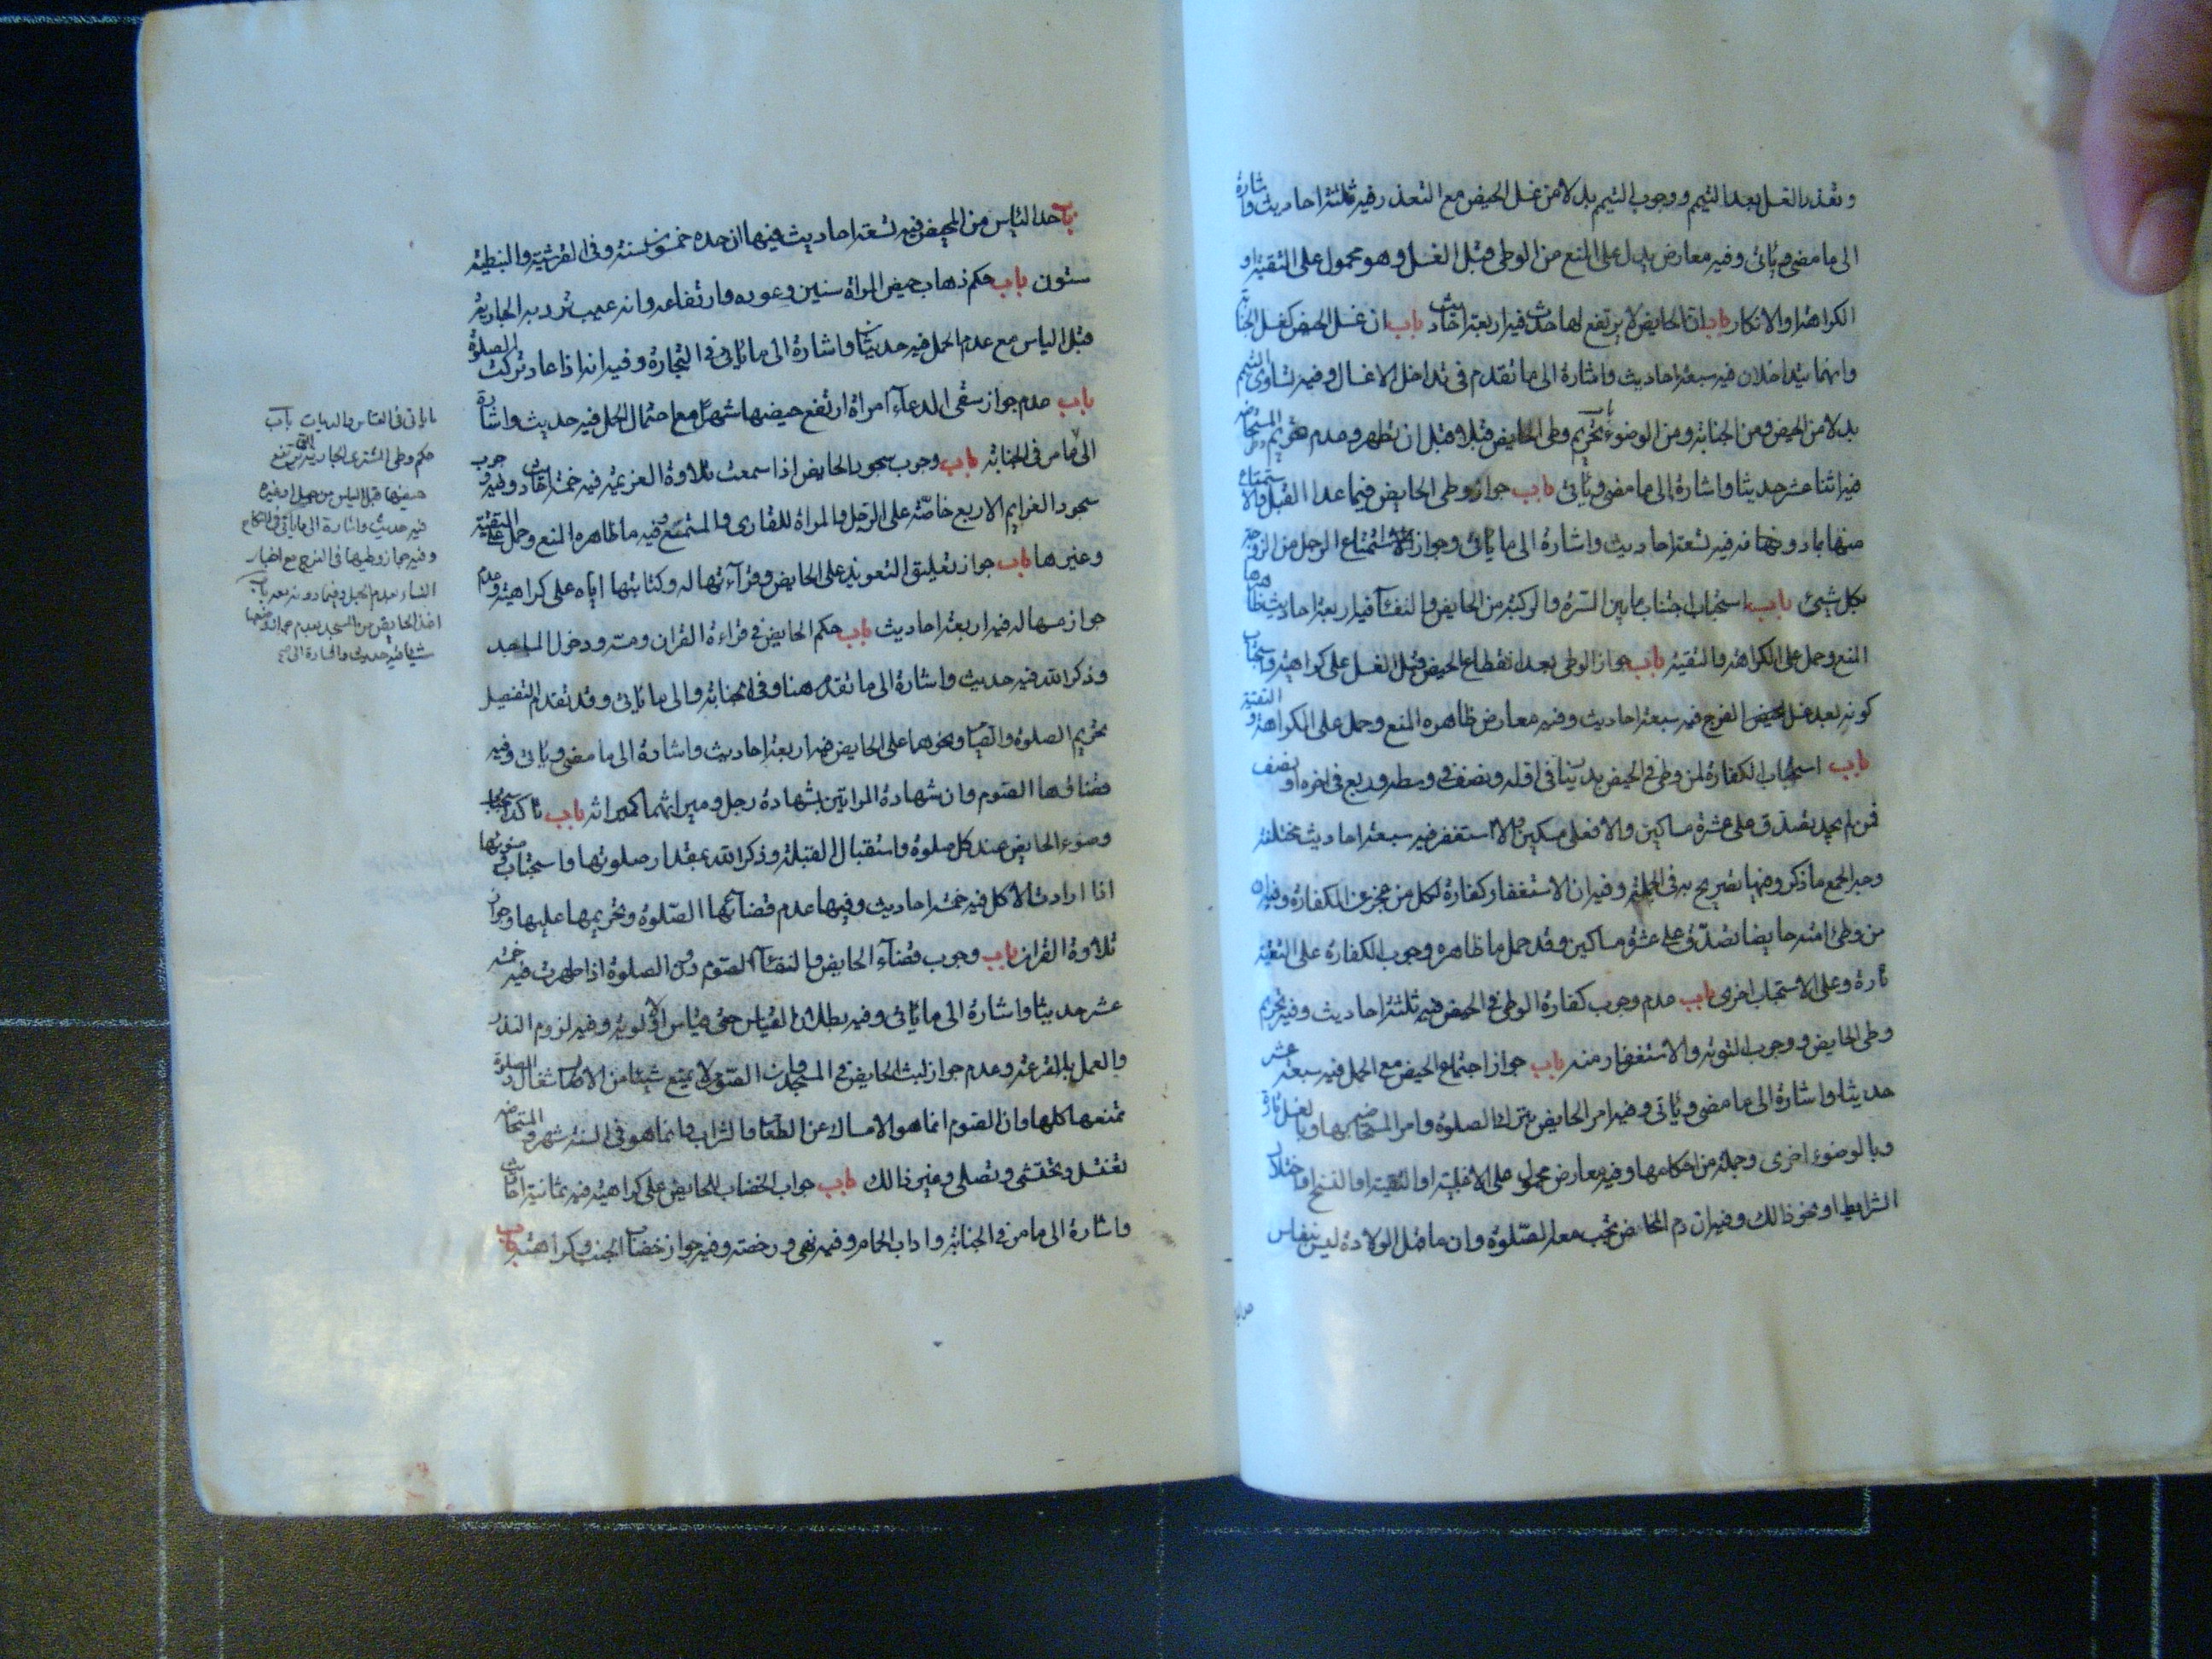 وتعذر الغسل بعد التيمم ووجوب التيمم بدلا من غسل الحيض مع التعذر فيه ثلثة احاديث واشارة
الى ما مضى وياتى وفيه معارض يدل على المنع من الوطى قبل الغسل وهو محمول على التقية او
الكراهة او الانكار باب ان الحايض لا يرتفع لها حدث فيه اربعة احاديث باب ان غسل الحيض كغسل الجنابة
وانهما يتداخلان فيه سبعة احاديث واشارة الى ما تقدم فى تداخل الاغسال وفيه تساوى التيمم
بدلا من الحيض ومن الجنابة ومن الوضوء باب تحريم وطى الحايض قبلا قبل ان تطهر وعدم تحريم وطى المستحاضة
فيه اثنا عشر حديثا واشارة الى ما مضى وياتى باب جواز وطى الحايض فيما عدا القبل والاستمتاع
منها بما دونه فيه تسعة احاديث واشارة الى ما ياتى وجواز استمتاع الرجل من الزوجة
بكل شيئ باب استحباب اجتناب ما بين السرة والركبة من الحايض والنفسآ فيه اربعة احاديث ظاهرها
المنع وحمل على الكراهة والتقية باب جواز الوطى بعد انقطاع الحيض قبل الغسل على كراهية واستحباب
كونه بعد غسل الفرج فيه سبعة احاديث وفيه معارض ظاهره المنع وحمل على الكراهة والتقية
باب استحباب الكفارة لمن وطى فى الحيض بدينار فى اوله ونصف فى وسطه وربع فى اخره او نصف
فمن لم يجد يتصدق على عشرة مساكين والا فعلى مسكين والا استغفر فيه سبعة احاديث مختلفة
وجه الجمع ما ذكر وفيها تصريح به فى الجملة وفيه ان الاستغفار كفارة لكل من عجز عن الكفارة وفيه ان
من وطى امته حايضا تصدق على عشرة مساكين وقد حمل ما ظاهره وجوب الكفارة على التقية
تارة وعلى الاستحباب اخرى باب عدم وجوب كفارة الوطى فى الحيض فيه ثلثة احاديث وفيه تحريم
وطى الحايض ووجوب التوبة والاستغفار منه باب جواز اجتماع الحيض مع الحمل فيه سبعة عشر
حديثا واشارة الى ما مضى وياتى وفيه امر الحايض بترك الصلوة وامر المستحاضة بها وبالغسل تارة
وبالوضوء اخرى وجملة من احكامها وفيه معارض محمول على الاغلبية او التقية او النسخ او اختلال
الشرايط او نحو ذالك وفيه ان دم المخاض تجب معه الصلوة وان ما قبل الولادة ليس بنفاس
باب حد الياس من المحيض فيه تسعة احاديث فيها ان حده خمسون سنة وفى القرشية والنبطية
ستون باب حكم ذهاب حيض المراة سنين وعوده وارتفاعه وانه عيب ترد به الجارية
قبل الياس مع عدم الحمل فيه حديثان واشارة الى ما ياتى فى التجارة وفيه انه اذا عاد تركت الصلوة
باب عدم جواز سقى الدوآء امراة ارتفع حيضها شهرا مع احتمال الحمل فيه حديث واشارة
الى ما مر فى الجنابة باب وجوب سجود الحايض اذا سمعت تلاوة العزيمة فيه خمسة احاديث وفيه وجوب
سجود العزايم الاربع خاصة على الرجل والمراة للقارى والمستمع وفيه ما ظاهره المنع وحمل على التقية
وغيرها باب جواز تعليق التعويذ على الحايض وقرآءتها له وكتابتها اياه على كراهية وعدم
جواز مسها له فيه اربعة احاديث باب حكم الحايض فى قراءة القران ومسه ودخول المساجد
وذكر الله فيه حديث واشارة الى ما تقدم هنا وفى الجنابة والى ما ياتى وقد تقدم التفصيل
تحريم الصلوة والصيام ونحوهما على الحايض فيه اربعة احاديث واشارة الى ما مضى وياتى وفيه
قضاؤها الصوم وان شهادة المراتين بشهادة رجل وميراثهما كميراثه باب تاكد استحباب
وضوء الحايض عند كل صلوة واستقبال القبلة وذكر الله بمقدار صلوتها واستحباب
اذا ارادت الاكل فيه خمسة احاديث وفيها عدم قضائها الصلوة وتحريمها عليها وجواز
تلاوة القران باب وجوب قضآء الحايض والنفسآء الصوم دون الصلوة اذا طهرت فيه خمسة
عشر حديثا واشارة الى ما ياتى وفيه بطلان القياس حتى قياس الاولوية وفيه لزوم النذر
والعمل بالقرعة وعدم جواز لبث الحايض فى المسجد وان الصوم لا يمنع شيئا من الاشغال والصلوة
تمنعها كلها وان الصوم انما هو الامساك عن الطعام والشراب وانما هو فى السنة شهر والمستحاضة
تغتسل وتحتشى وتصلى وغير ذالك باب جواز الخضاب للحايض على كراهية فيه ثمانية احاديث
واشارة الى ما مر فى الجنابة واداب الحمام وفيه نهى ورخصة وفيه جواز خضاب الجنب وكراهته باب
ما ياتى فى القياس والديات باب
حكم وطى المشترى الجارية التى ترتفع
حيضها قبل الياس من حمل او غيره
فيه حديث واشارة الى ما ياتى فى النكاح
وفيه جواز وطيها فى الفرج مع اخبار
النساء بعدم الحبل وفيما دونه بعد باب
اخذ الحايض من المسجد بعدم جواز وضعها
شيئا فيه حديث واشارة الى